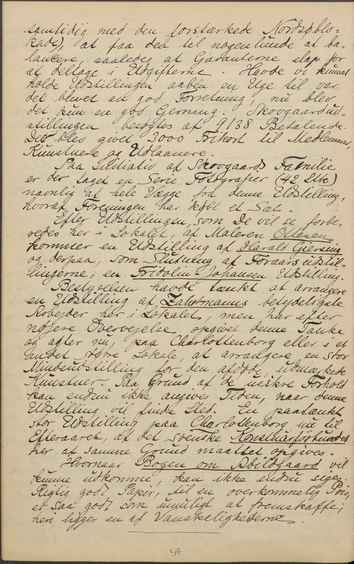 samtidig med den forstærkede Nordsøblo-
kade, at faa den til nogenlunde at ba-
lancere, saaledes at Garanterne slap for
at deltage i Udgifterne. Havde vi kunnet
holde Udstillingen aaben en Uge til var
det blevet en god Forretning, nu blev
det kun en god Gerning. Skovgaardud-
stillingen besøgtes af 9138 Betalende.
Der blev givet 3000 Frikort til Medlemmer,
Kunstnere og Udlaanere.
Paa Initiativ af Skovgaards Familie
er der taget en Serie Fotografier (42 Stk)
navnlig af hele Vægge fra denne Udstilling,
hvoraf Foreningen har købt et Sæt.
Efter Udstillingen, som De vil se forbe-
redes her i Lokalet, af Maleren
kommer en Udstilling af Harald Giersing
og derpaa, som Slutning af Foraarsudstil-
lingerne, en Fridolin Johansen Udstilling.
Bestyrelsen havde tænkt at arrangere
en Udstilling af Zahrtmanns betydeligste
Arbejder her i Lokalet, men har efter
nøjere Overvejelse opgivet denne Tanke
og agter nu, paa Charlottenborg eller i et
andet større Lokale, at arrangere en stor
Mindeudstilling for den afdøde, udmærkede
Kunstner. Paa Grund af de usikre Forhold
kan endnu ikke angives Tiden, naar denne
Udstilling vil finde Sted. En paatænkt
stor Udstilling paa Charlottenborg nu til
Efteraaret, af det svenske Konstnärförbundet
har af samme Grund maattet opgives.
Hvornaar Bogen om Abildgaard vil
kunne udkomme, kan ikke endnu siges.
Rigtig godt Papir, til en overkommelig Pris,
er saa godt som umuligt at fremskaffe;
heri ligger en af Vanskelighederne.